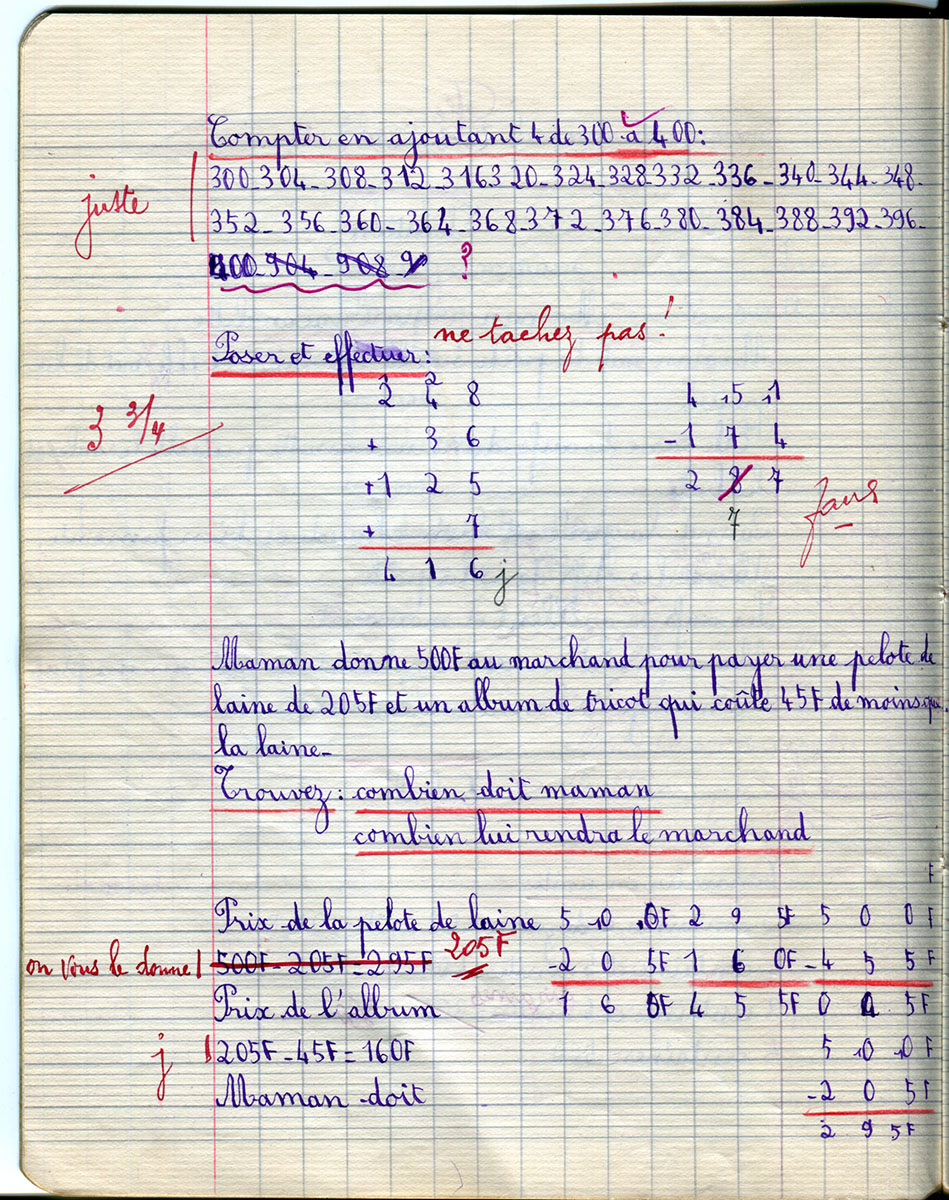 Compter en ajoutant 4 de 300 à 400:
juste
300_304_308_312_316 320_324_328 332_336_340_344_348_
352_356_360_364_368 372_376 380_384_388_392_396_
400_904_908 9 ?
Poser et effectuer: ne tachez pas!
3 3/4
2
2 4 8
+ 3 6
+1 2 5
+ 7
4 1 6 j
4 15 11
-1 7 4
2 8 7
7
faux
Maman donne 500F au marchand pour payer une pelote de
laine de 205F et un album de tricot qui coûte 45F de moins que
la laine_
Trouvez: combien doit maman
combien lui rendra le marchand
F
Prix de la pelote de laine 5 10 10F 2 9 5F 5 0 0F
on vous le donne! 500F-205F=295F 205F -2 0 5F 1 6 0F -4 5 5F
Prix de l'album 1 6 0F 4 5 5F 0 4 5F
j 205F-45F=160F 5 10 10F
Maman doit -2 0 5F
2 9 5F